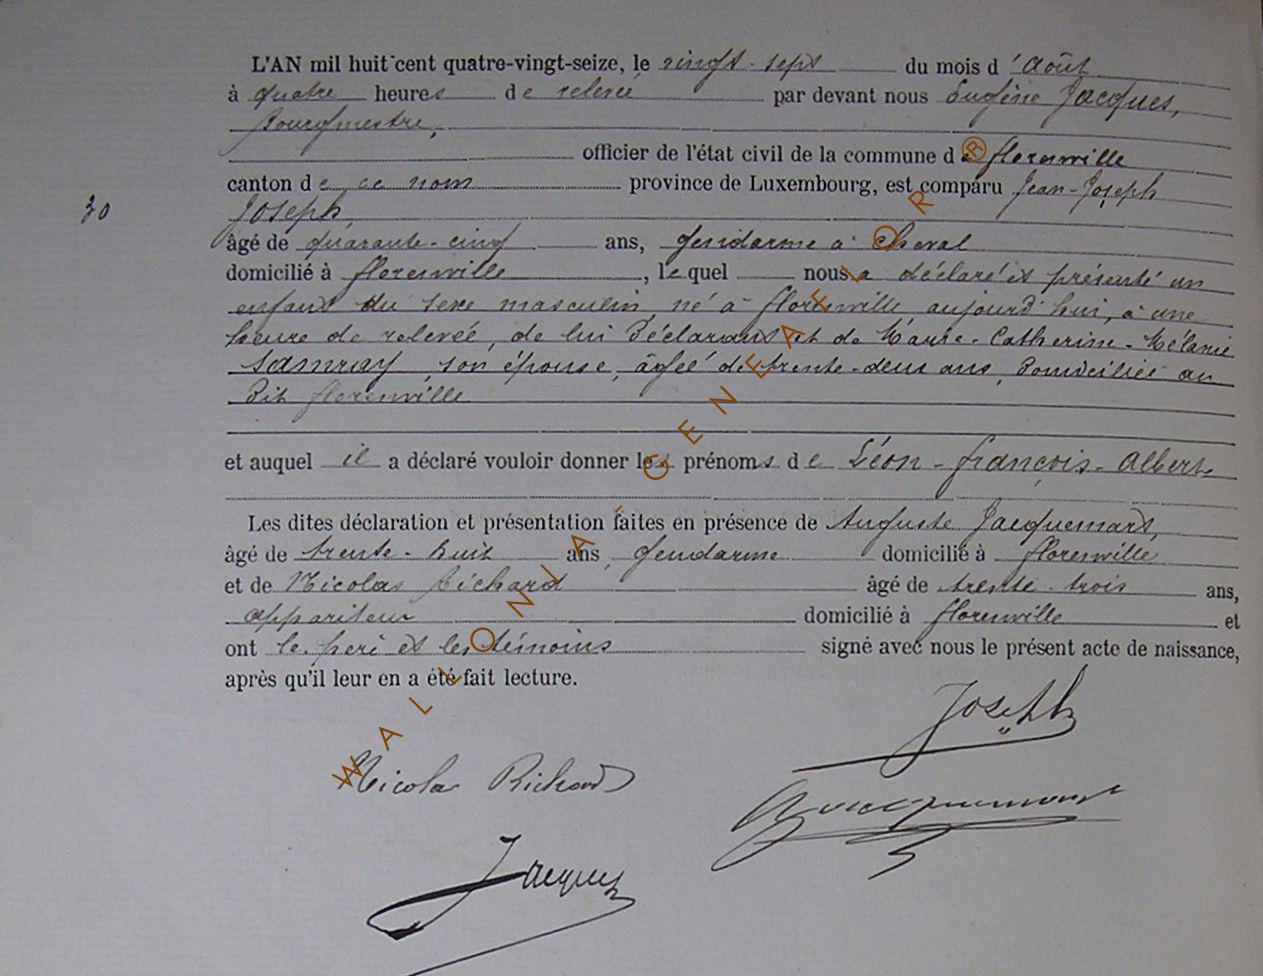 L'AN mil huit cent quatre-vingt-seize, le vingt-sept du mois d'Août
à quatre heures de relevée par devant nous Eugène Jacques,
bourgmestre,
officier de l'état civil de la commune de florenville
canton de ce nom province de Luxembourg, est comparu Jean-Joseph
30
Joseph,
âgé de quarante-cinq ans, gendarme à cheval
domicilié à florenville, lequel nous a déclaré et présenté un
enfant du sexe masculin, né à florenville aujourd'hui, à une
heure de relevée, de lui déclarant et de Marie-Catherine-Mélanie
Samray, son épouse, âgée de trente-deux ans, domiciliée au
dit florenville
et auquel il a déclaré vouloir donner les prénoms de Léon-françois-Albert
Les dites déclaration et présentation faites en présence de Auguste Jacquemart,
âgé de trente-huit ans, gendarme domicilié à florenville
et de Nicolas Richard âgé de trente-trois ans,
appariteur domicilié à florenville et
ont le père et les témoins signé avec nous le présent acte de naissance,
après qu'il leur en a été fait lecture.
Joseph
Nicolas Richard
Jacquemart
Jacques
WALLONIA-GENEAFLOR®